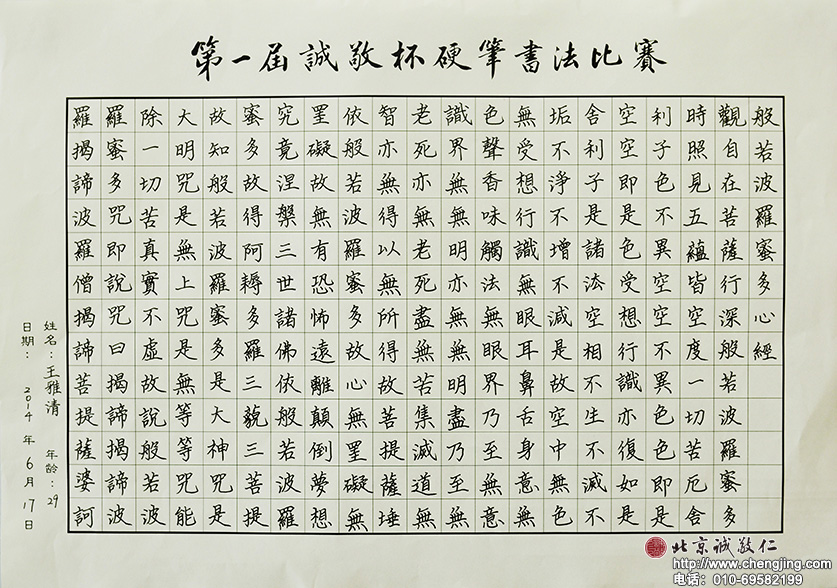 第一届誠敬杯硬筆書法比賽
般若波羅蜜多心經
觀自在菩薩行深般若波羅蜜多
時照見五蘊皆空度一切苦厄舍
利子色不異空空不異色色即是
空空即是色受想行識亦復如是
舍利子是諸法空相不生不滅不
垢不淨不增不減是故空中無色
無受想行識無眼耳鼻舌身意無
色聲香味觸法無眼界乃至無意
識界無無明亦無無明盡乃至無
老死亦無老死盡無苦集滅道無
智亦無得以無所得故菩提薩埵
依般若波羅蜜多故心無罣礙無
罣礙故無有恐怖遠離顛倒夢想
究竟涅槃三世諸佛依般若波羅
蜜多故得阿耨多羅三藐三菩提
故知般若波羅蜜多是大神咒是
大明咒是無上咒是無等等咒能
除一切苦真實不虛故說般若波
羅蜜多咒即說咒曰揭諦揭諦波
羅揭諦波羅僧揭諦菩提薩婆訶
姓名：王雅清 年龄：29
日期： 2014 年 6 月 17 日
北京誠敬仁
http://www.chengjing.com
电话：010-69582199